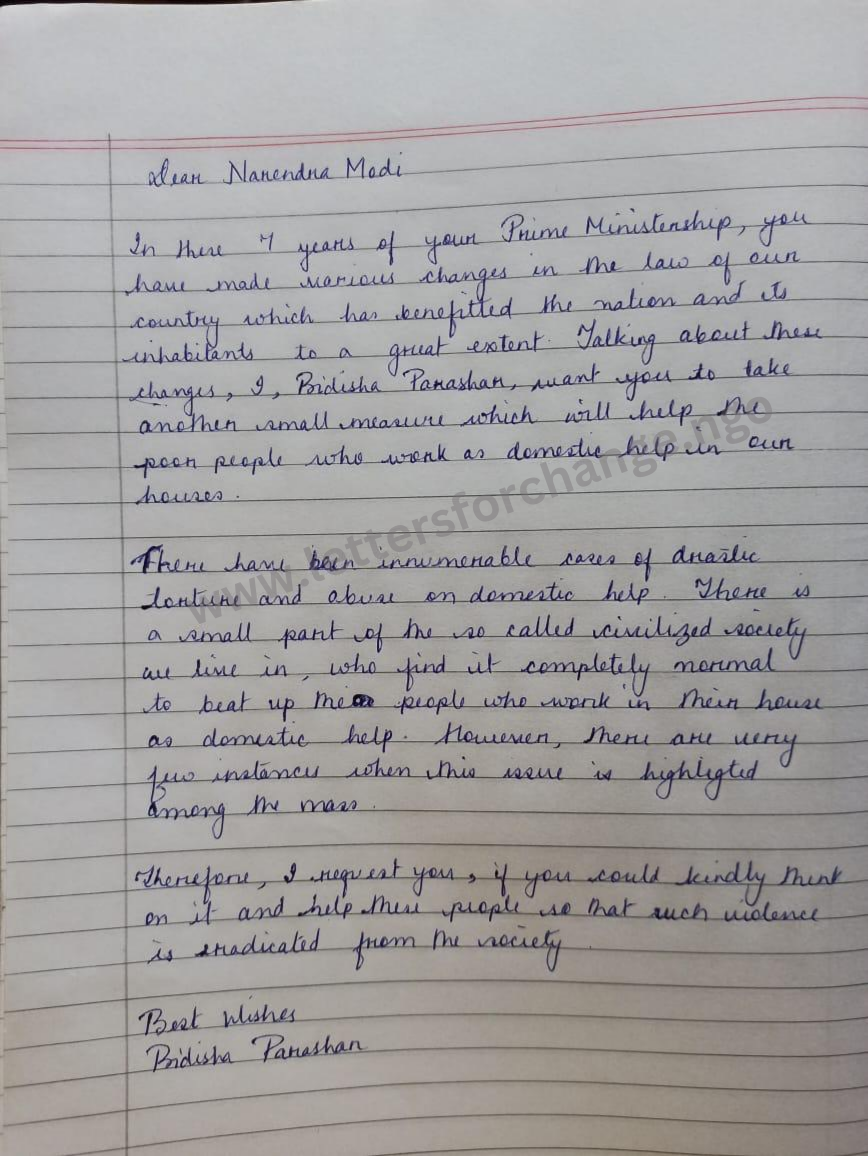 Dear Narendra Modi
In these 7 years of your Prime Ministership, you
have made various changes in the law of our
country which has benefitted the nation and its
inhabitants to a great extent. Talking about these
changes, I, Bidisha Parashar, want you to take
another small measure which will help the
poor people who work as domestic help in our
houses.
www.lettersforchange.ngo
There have been innumerable cases of drastic
torture and abuse on domestic help. There is
a small part of the so called civilized society
we live in, who find it completely normal
to beat up the people who work in their house
as domestic help. However, there are very
few instances when this issue is highligted
among the mass.
Therefore, I request you, if you could kindly think
on it and help these people so that such violence
is eradicated from the society.
Best Wishes
Bidisha Parashar